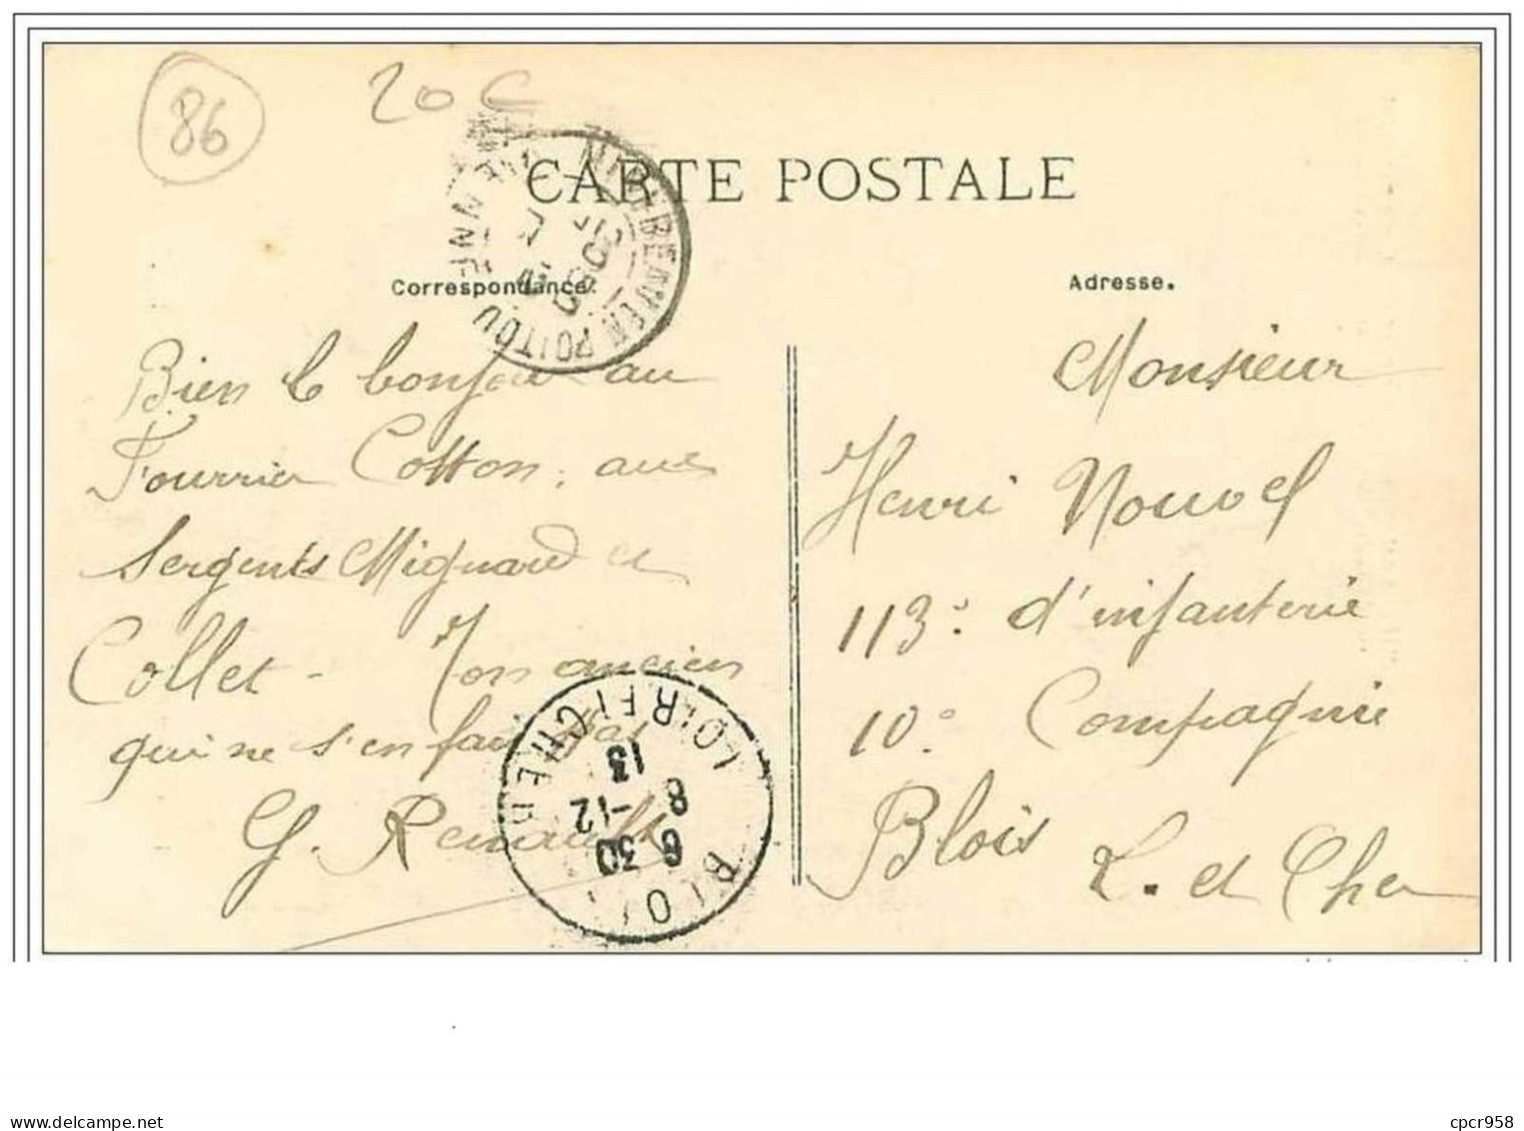 86
20 C
CARTE POSTALE
MIREBEAU EN POITOU
VIENNE
Correspondance.
Adresse.
Bien le bonjour au
Fourrier Cotton, aux
Sergents Mignard et
Collet - Ton ancien
qui ne s'en fait pas
G. Renault
Monsieur
Henri Nouvel
113e d'infanterie
10e Compagnie
Blois
L. et Cher
BLOIS
LOIR-ET-CHER
6 30
8 -12
13
cpcr958